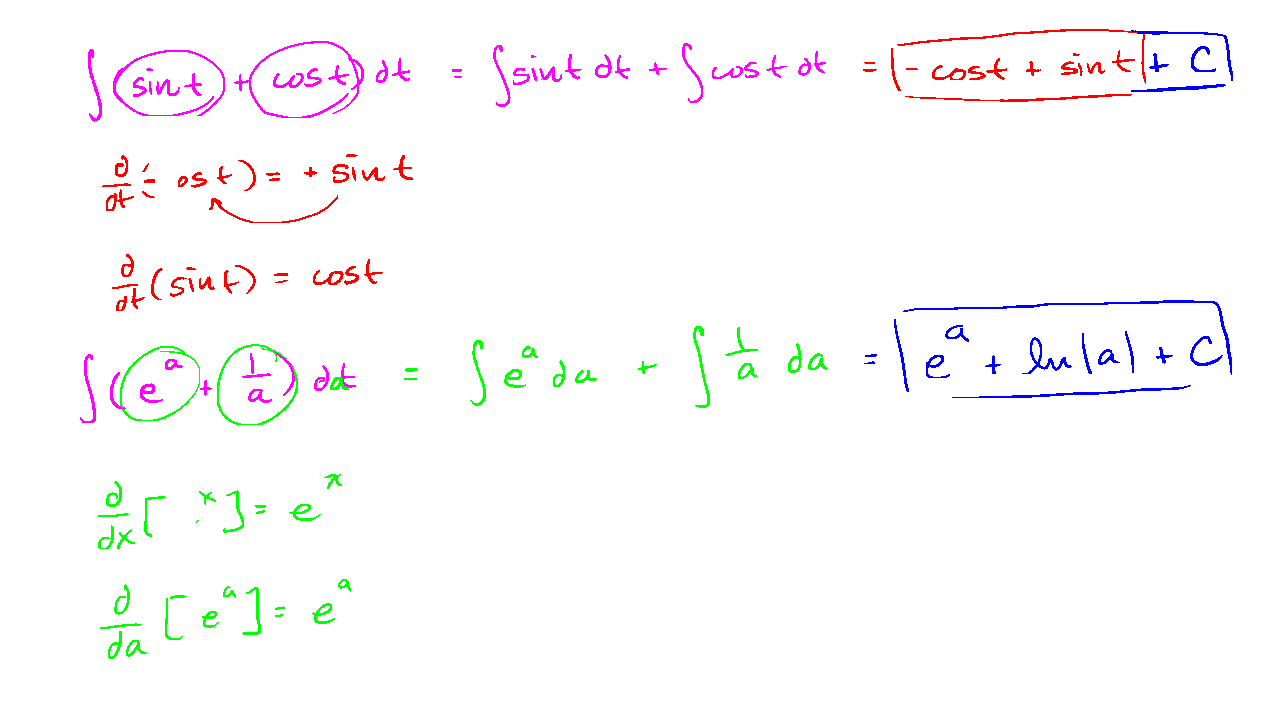 ∫ (sin t + cos t) dt = ∫ sin t dt + ∫ cos t dt = - cos t + sin t + C
d/dt (- os t) = + sin t
d/dt (sin t) = cos t
∫ (e^a + 1/a) da = ∫ e^a da + ∫ 1/a da = e^a + ln|a| + C
d/dx [ x ] = e^x
d/da [ e^a ] = e^a